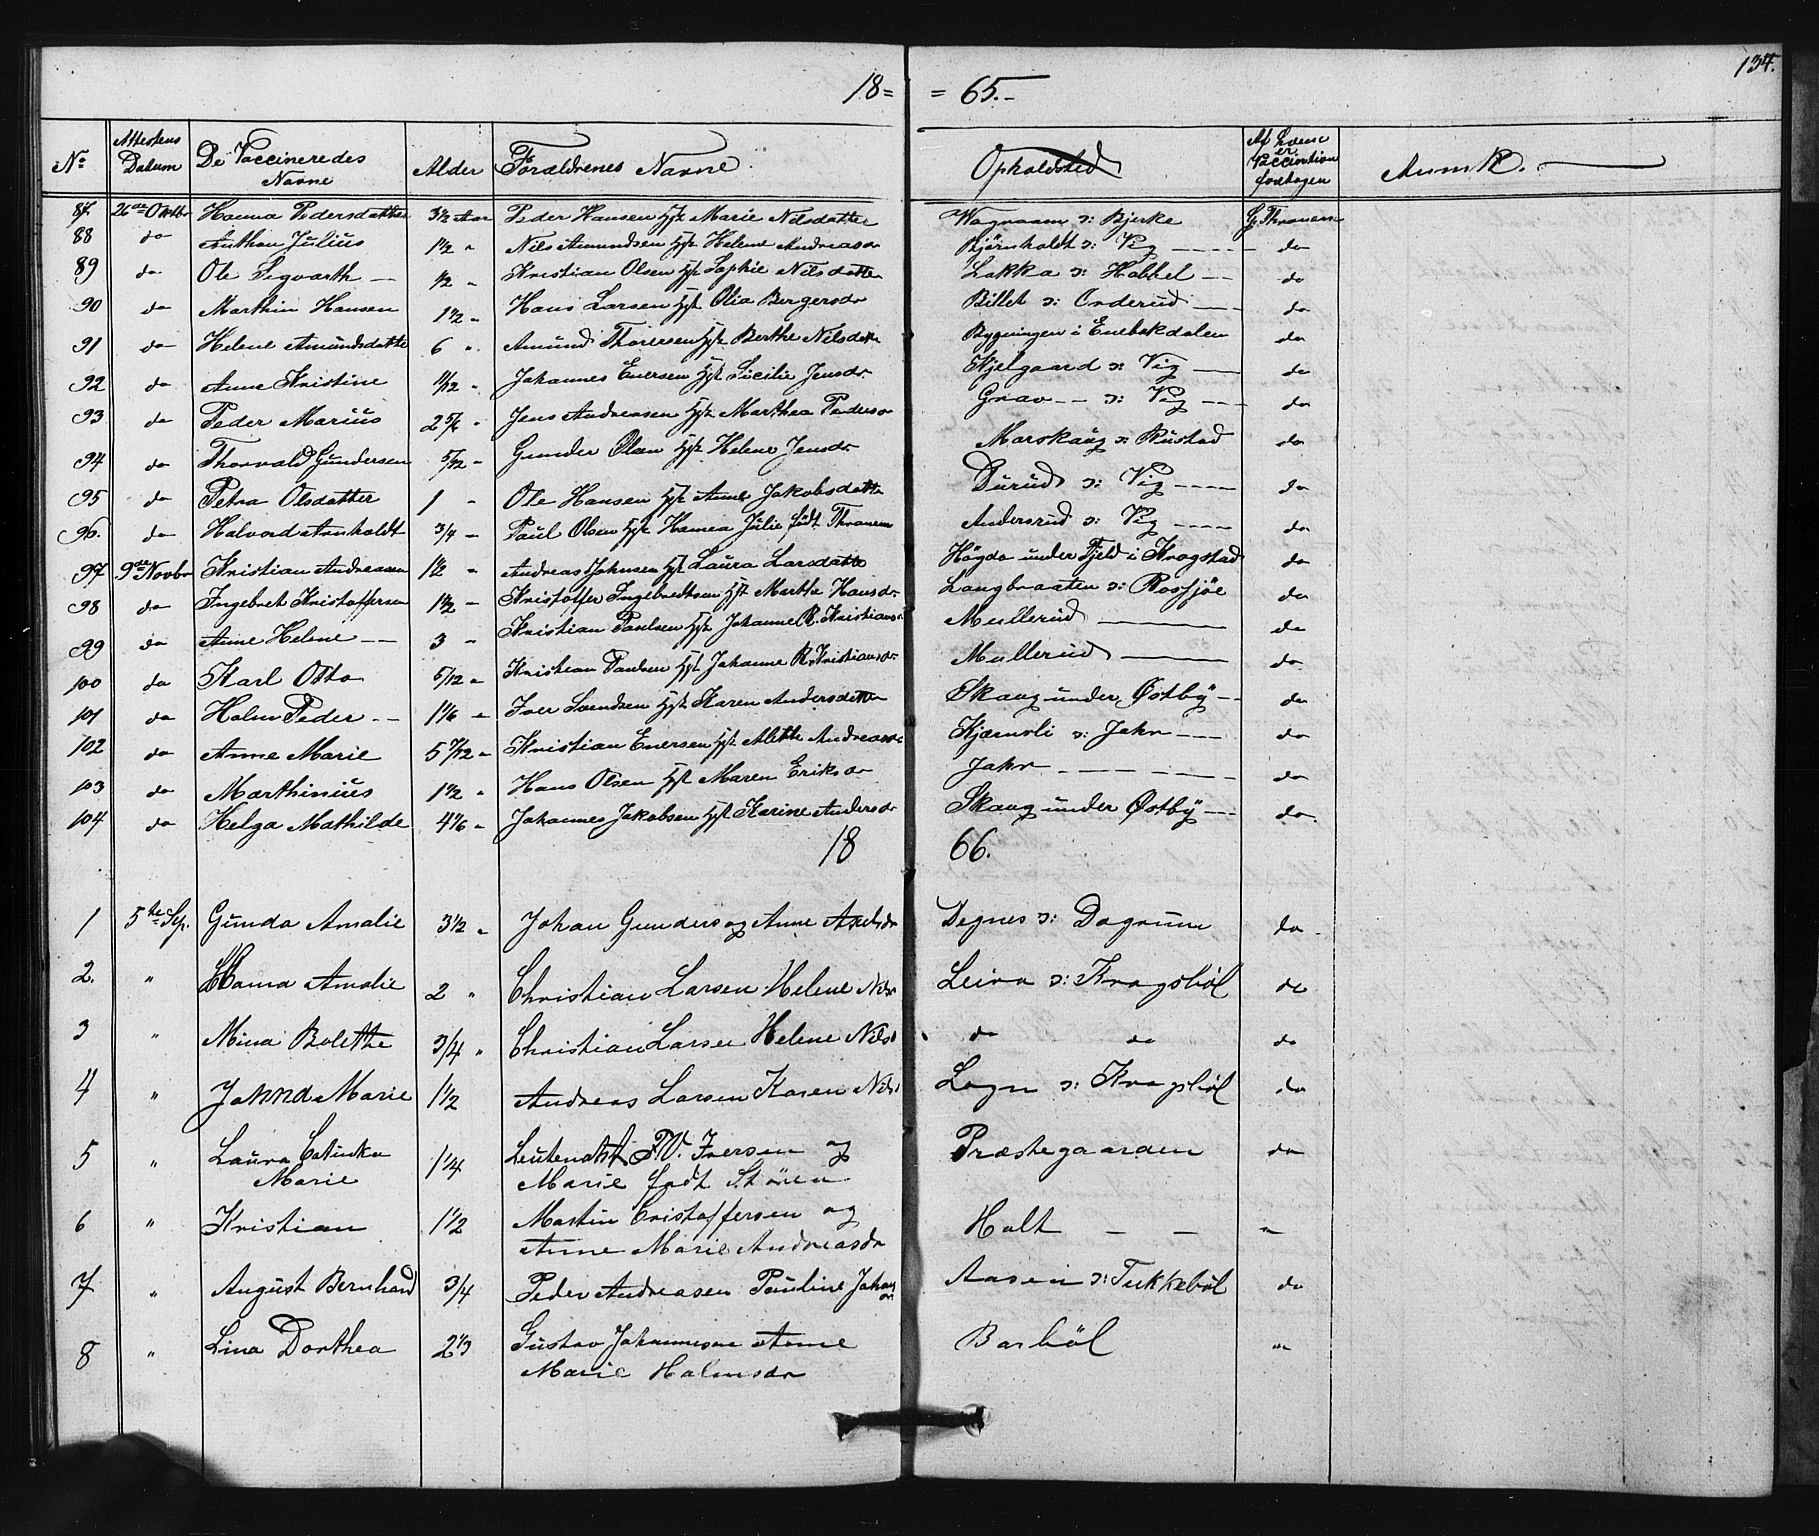 134.
18 = = 65.-
No Attestens Datum De Vaccineredes Navne Alder Forældrenes Navne Opholdsted Af hvem er Vaccination foretagen Anmk.
87. 26de Oktbr Hanna Pedersdatter 3½ Aar Peder Hansen Hst Marie Nilsdatter Wagnaam d: Bjerke G. Thronsen
88 do Anthon Julius 1½ " Nils Amundsen Hst Helene Andreasdr Bjørnholdt d: Vig do
89 do Ole Sigvarth ½ " Kristian Olsen Hst Sophie Nilsdatter Lakka d: Habbel do
90 do Marthin Hansen 1½ " Hans Larsen Hst Olia Bergersdr Billet d: Orderud do
91 do Helene Amundsdatter 6 " Amund Thoresen Hst Berthe Nilsdatter Bygningen i Enebakdalen do
92 do Anne Kristine 11/12 " Johannes Enersen Hst Sicilie Jensdr. Kjelgaard d: Vig do
93 do Peder Marius 2 5/6 " Jens Andreasen Hst Marthea Pedersdr Grav d: Vig do
94 do Thorvald Gundersen 5/12 " Gunder Olsen Hst Helene Jensdr. Morskaug d: Rustad do
95 do Petra Olsdatter 1 " Ole Hansen Hst Anne Jakobsdatter Durud d: Vig do
96. do Halvord Arnholdt 3/4 " Paul Olsen Hst Hanna Julie født Thronsen Andersrud d: Vig do
97 9de Novbr Kristian Andreasen 1½ " Andreas Johnsen Hst Laura Larsdatter Høgda under Fjeld i Kragstad do
98 do Ingebret Kristoffersen 1½ " Kristoffer Ingebredtsen Hst Marthe Hansdr. Langbraaten d: Rosjøe do
99 do Anne Helene 3 " Kristian Paulsen Hst Johanne R. Kristiansdr Mullerud do
100 do Karl Otto 5/12 " Kristian Paulsen Hst Johanne R. Kristiansdr. Mullerud do
101 do Holm Peder 1 1/6 " Iver Svendsen Hst Karen Andersdatter Skaug under Østby do
102 do Anne Marie 5 7/12 " Kristian Enersen Hst Alette Andreasdr Kjærnsli d: Jahr do
103 do Marthinius 1½ " Hans Olsen Hst Maren Eriksdr Jahr do
104 do Helga Mathilde 4 1/6 " Johannes Jakobsen Hst Karine Andersdr Skaug under Østby do
18 66.
1 5te Sp. Gunda Amalie 3½ " Johan Gunders og Anne Axelsdr Degnes d: Dagrum do
2. " Hanna Amalie 2 " Christian Larsen Helene Nilsd Leira d: Kragsbøl do
3 " Mina Bolette 3/4 " Christian Larsen Helene Nilsd do do do
4 " Johnna Marie 1½ Andreas Larsen Karen Nilsd Lagn d: Kragsbøl do
5 " Laura Catinka 1¼ Leutenant F.W. Iversen og Præstegaarden do
Marie Marie født Støren
6 " Kristian 1½ Martin Cristoffersen og Holt "
Anne Marie Andreasdr
7 " August Bernhard 3/4 Peder Andreasen Pauline Johansdr Aasen d: Tukkebøl do
8 " Lina Dorthea 2⅓ Gustav Johannesen Anne Barbøl "
Marie Holmsdr